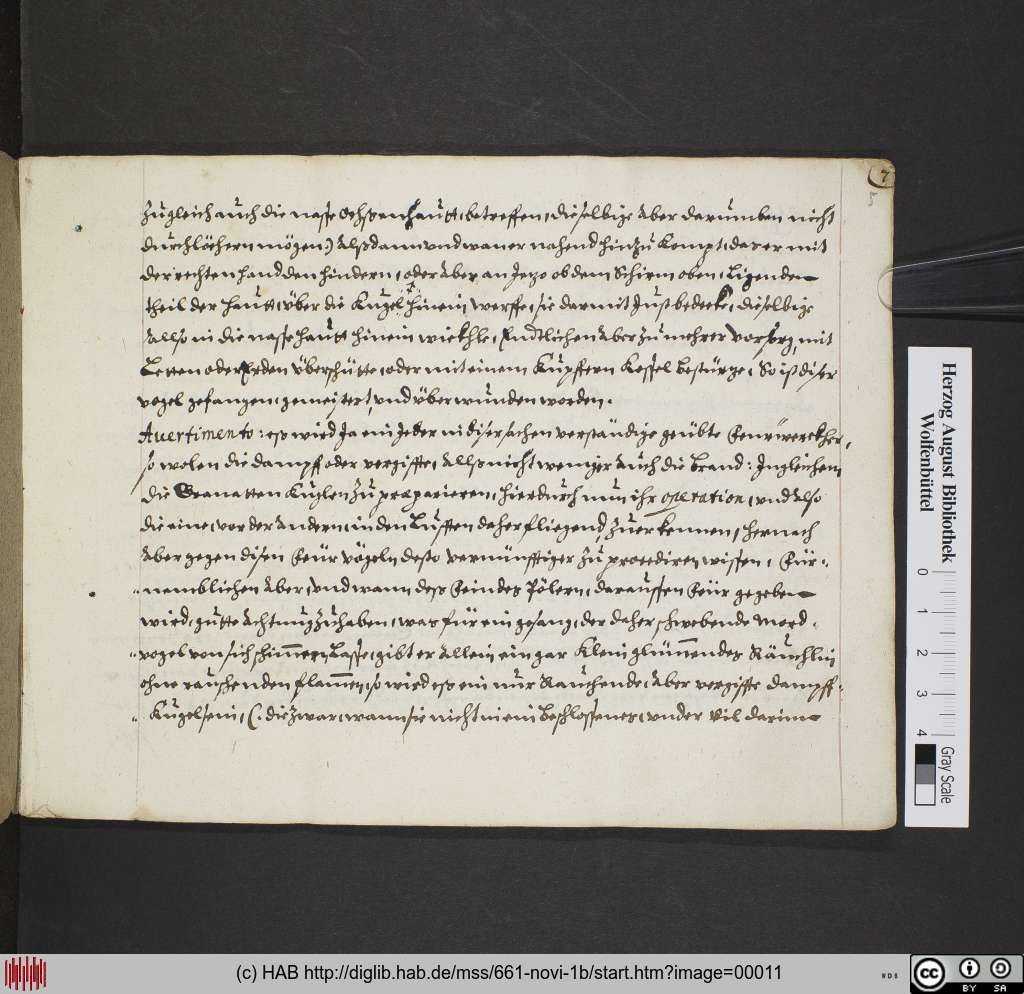 7
5
zugleich auch die nasse Ochßenhautt, betreffen, dieselbige aber darumben nicht
durchlöchern mögen:) Alßdann und wan er nahend hinzu kompt, das er mit
der rechten hand den hindern, oder aber an Jezo ob dem Schirm oben, Ligenden
theil der hautt, über die Kugel hinein, werffe, sie darmit Just bedecke, dieselbige
allso in die nasse hautt hinein wickhle, Endtlichen aber zu mehrer vorsorg, mit
Letten oder Erden überschütte, oder mit einem Kupffern Kessel bestürze, So ist diser
vogel gefangen, gemeistert, und überwunden worden.
Avertimento: eß wird Ja ein Jeder in diser sachen verständige geübte Feürwerckher,
so wolen die dampf oder vergiffte, Allß nicht weniger auch die Brand: Ingleichem
die Granatten Kuglen zu præparieren, hierdurch nun ihr operation, und also
die eine, vor der andern, in den Lufften daher fliegend, zu erkennen, hernach
aber gegen disen Feür vögeln desto vernünfftiger zu procediren wissen, Für-
nemblichen aber, und wann deß Feindes Pölern, daraussen Feür gegeben
wird, gutte achtnug zu haben, was für ein gesang, der daher schwebende Mord-
vogel von sich schim̄ern Lasse, gibt er allein ein gar klein glüm̄endes Räuchlin
ohne rauschenden flam̄en, so wird eß ein nur Rauchende, aber vergiffte dampff-
Kugel sein, (: die zwar, wann sie nicht in ein beschlossenes, under vil darinn
Herzog August Bibliothek
Wolfenbüttel
0 1 2 3 4
Gray Scale
(c) HAB http://diglib.hab.de/mss/661-novi-1b/start.htm?image=00011
WDB
cc BY SA